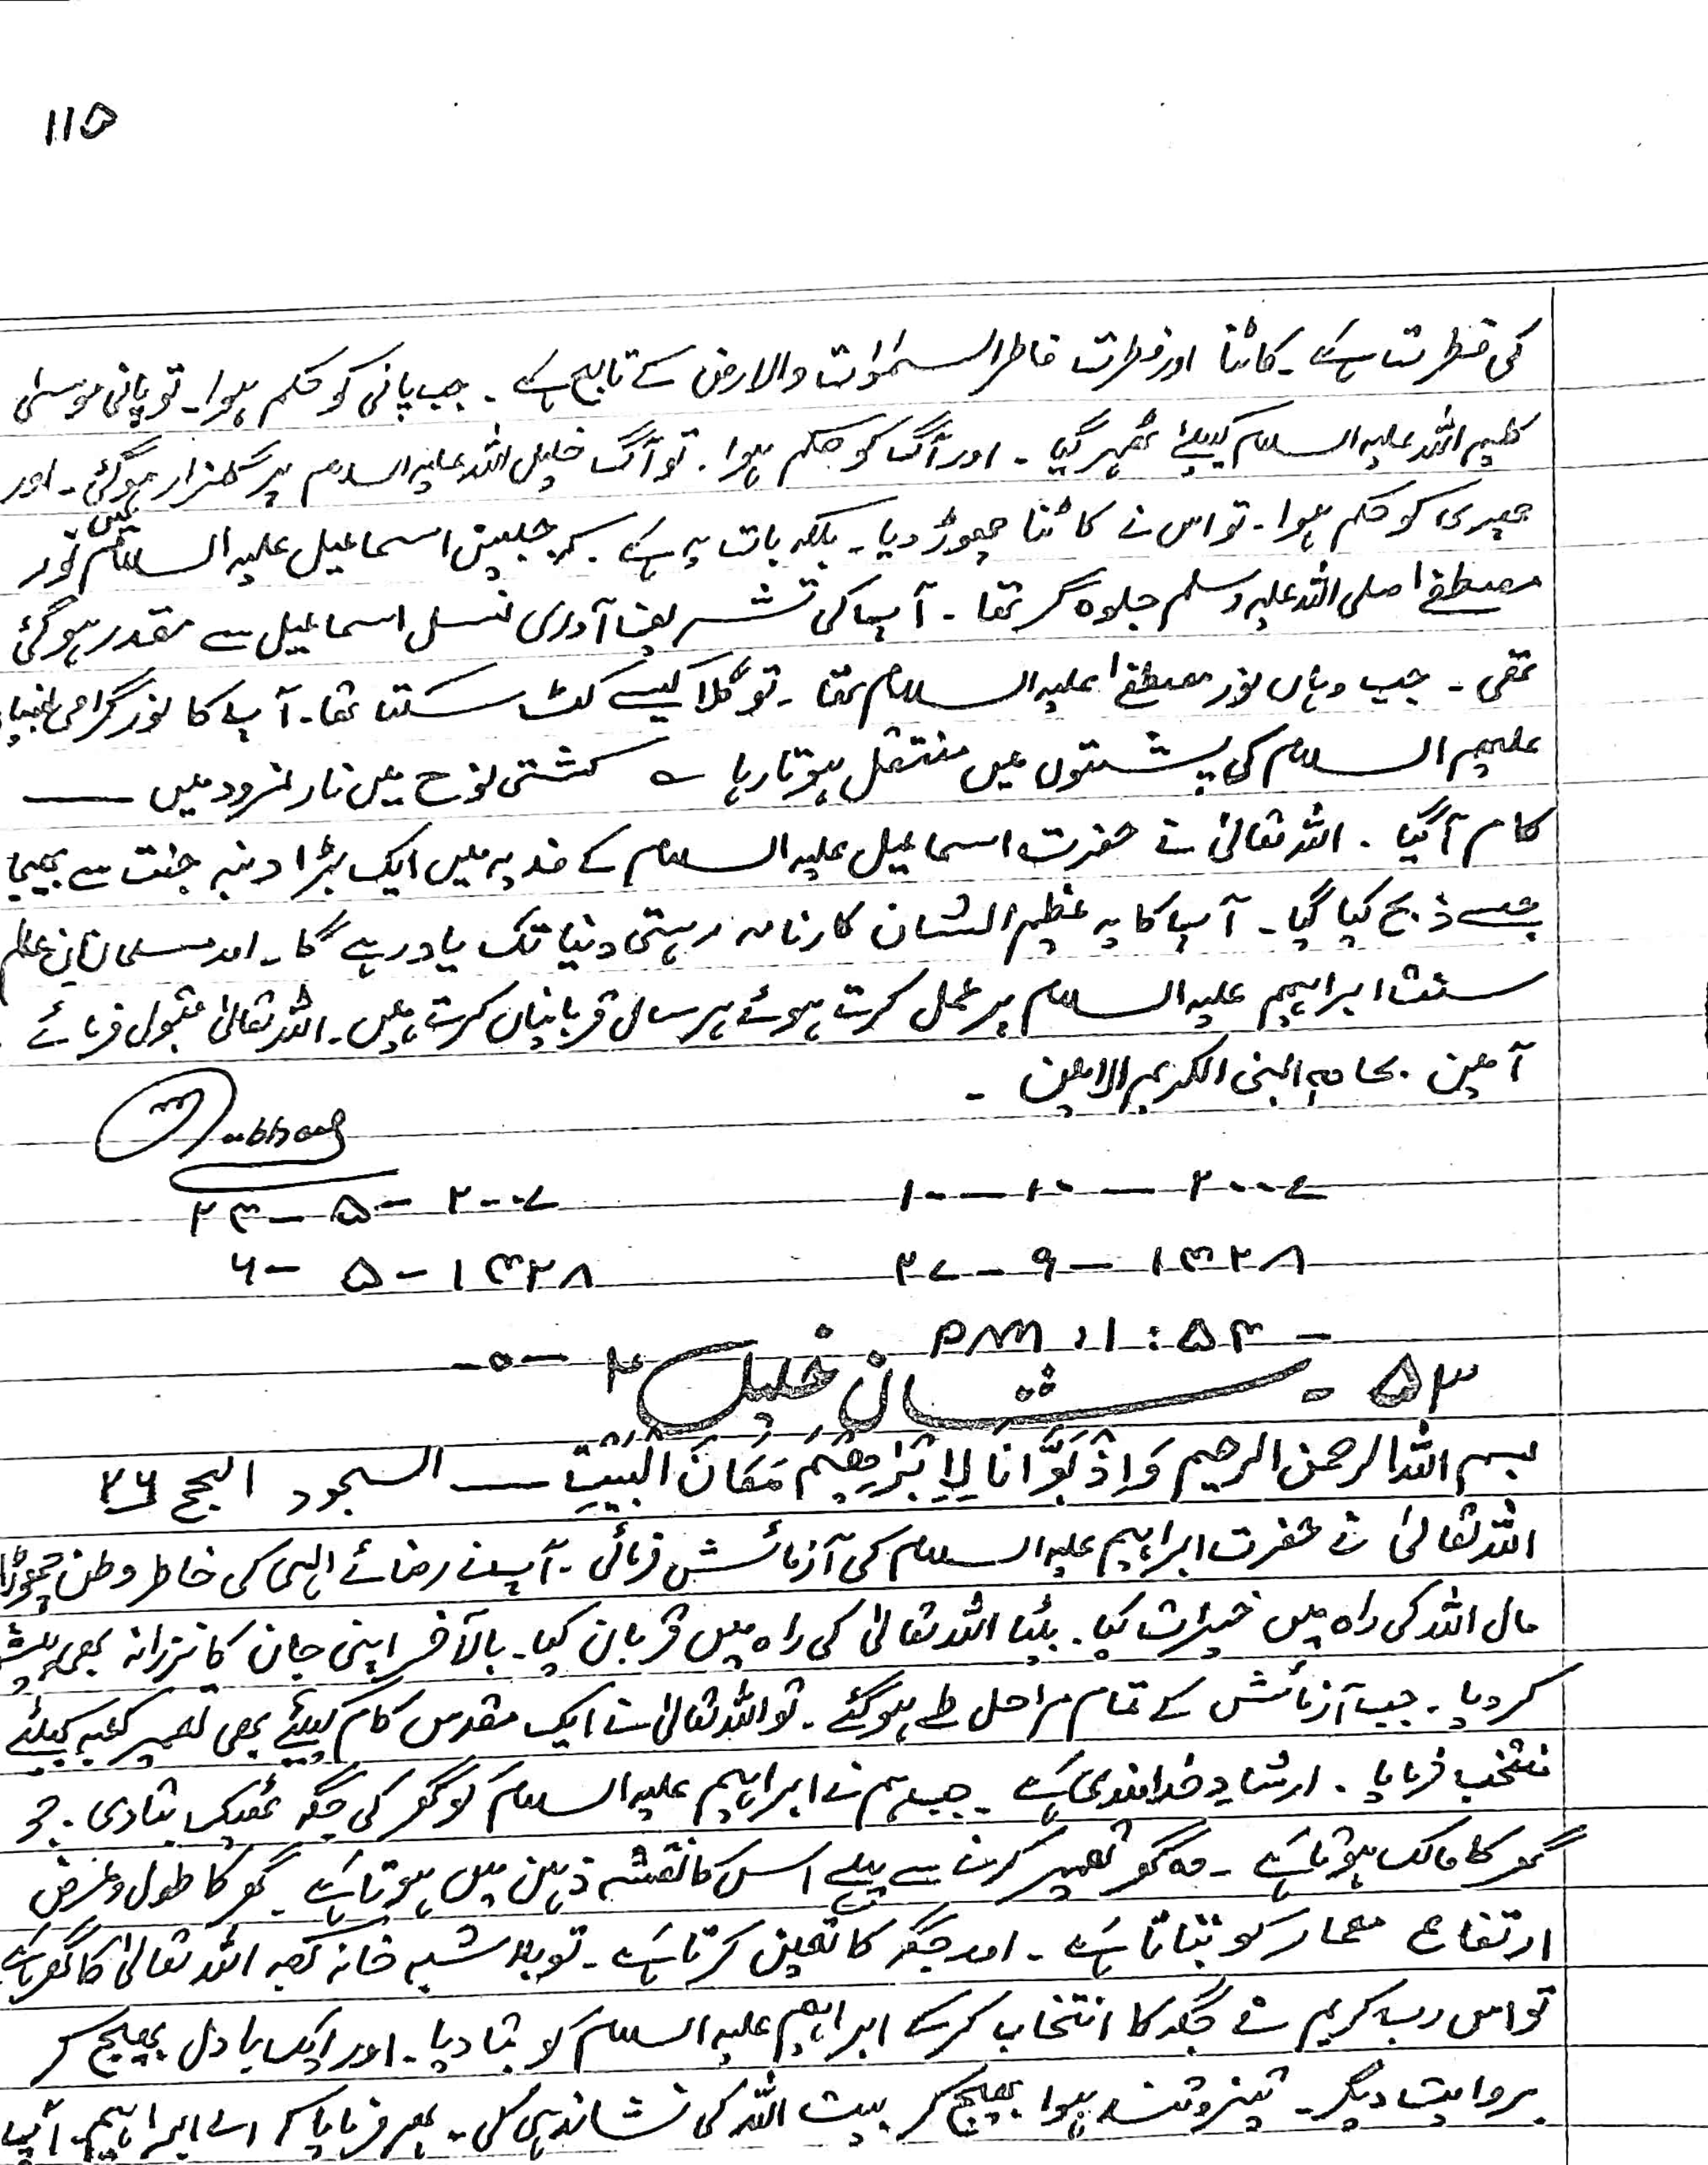 ۱۱۵
کی فطرت ہے ۔ کاٹنا اور فطرت فاطر السمٰوٰت والارض کے تابع ہے ۔ جب پانی کو حکم ہوا ۔ تو پانی موسیٰ
کلیم اللہ علیہ السلام کیلئے ٹھہر گیا ۔ اور آگ کو حکم ہوا ۔ تو آگ خلیل اللہ علیہ السلام پر گلزار ہو گئی ۔ اور
چھری کو حکم ہوا ۔ تو اس نے کاٹنا چھوڑ دیا ۔ بلکہ بات یہ ہے ۔ کہ جبین اسماعیل علیہ السلام میں نور
مصطفےٰ صلی اللہ علیہ وسلم جلوہ گر تھا ۔ آپ کی تشریف آوری نسل اسماعیل سے مقدر ہو گئی
تھی ۔ جب وہاں نور مصطفےٰ علیہ السلام تھا ۔ تو گلا کیسے کٹ سکتا تھا ۔ آپ کا نور گرامی انبیاء
علیہم السلام کی پشتوں میں منتقل ہوتا رہا ؎ کشتی نوح میں نار نمرود میں ——
کام آ گیا ۔ اللہ تعالیٰ نے حضرت اسماعیل علیہ السلام کے فدیہ میں ایک بڑا دنبہ جنت سے بھیجا
جسے ذبح کیا گیا ۔ آپ کا یہ عظیم الشان کارنامہ رہتی دنیا تک یاد رہے گا ۔ اور مسلمانان عالم
سنت ابراہیم علیہ السلام پر عمل کرتے ہوئے ہر سال قربانیاں کرتے ہیں ۔ اللہ تعالیٰ قبول فرمائے ۔
آمین بجاہ النبی الکریم الامین ۔
۱۰ — ۱۰ — ۲۰۰۷ ۲۳ — ۵ — ۲۰۰۷
۲۷ — ۹ — ۱۴۲۸ ۶ — ۵ — ۱۴۲۸
PM ۱۱:۵۳ —
۵۳ ۔ شان خلیل ۴ —۰—
بسم اللہ الرحمن الرحیم وَاِذْ بَوَّاْنَا لِاِبْرٰهِيْمَ مَكَانَ الْبَيْتِ —— السجود الحج ۲۶
اللہ تعالیٰ نے حضرت ابراہیم علیہ السلام کی آزمائش فرمائی ۔ آپ نے رضائے الٰہی کی خاطر وطن چھوڑا
مال اللہ کی راہ میں خیرات کیا ۔ بیٹا اللہ تعالیٰ کی راہ میں قربان کیا ۔ بالآخر اپنی جان کا نذرانہ بھی پیش
کر دیا ۔ جب آزمائش کے تمام مراحل طے ہو گئے ۔ تو اللہ تعالیٰ نے ایک مقدس کام کیلئے بھی تعمیر کعبہ کیلئے
منتخب فرمایا ۔ ارشاد خداوندی ہے ۔ جب ہم نے ابراہیم علیہ السلام کو گھر کی جگہ ٹھیک بتا دی ۔ جو
گھر کا مالک ہوتا ہے ۔ وہ گھر تعمیر کرنے سے پہلے اس کا نقشہ ذہن میں ہوتا ہے ۔ گھر کا طول و عرض
ارتفاع معمار کو بتاتا ہے ۔ اور جگہ کا تعین کرتا ہے ۔ تو بلا شبہ خانہ کعبہ اللہ تعالیٰ کا گھر ہے
تو اس رب کریم نے جگہ کا انتخاب کر کے ابراہیم علیہ السلام کو بتا دیا ۔ اور ایک بادل بھیج کر
بروایت دیگر ۔ تیز و تند ہوا بھیج کر بیت اللہ کی نشاندہی کی ۔ پھر فرمایا کہ اے ابراہیم آپ